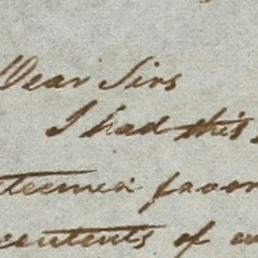 Dear Sirs
I had this
esteemed favor
contents of